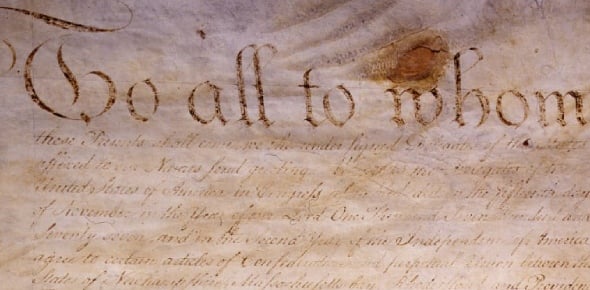 To all to whom
these Presents shall come, we the under signed Delegates of the States
affixed to our Names send greeting. Whereas the Delegates of the
United States of America in Congress assembled did on the fifteenth day
of November in the Year of our Lord One Thousand Seven Hundred and
Seventy seven, and in the Second Year of the Independence of America
agree to certain articles of Confederation and perpetual Union between the
States of Newhampshire, Massachusetts-bay, Rhodeisland and Providen